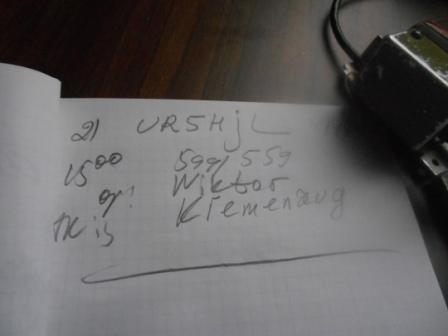 21 UR5HjL
15⁰⁰ 599/559
op: Wiktor
TK is Klemenzug